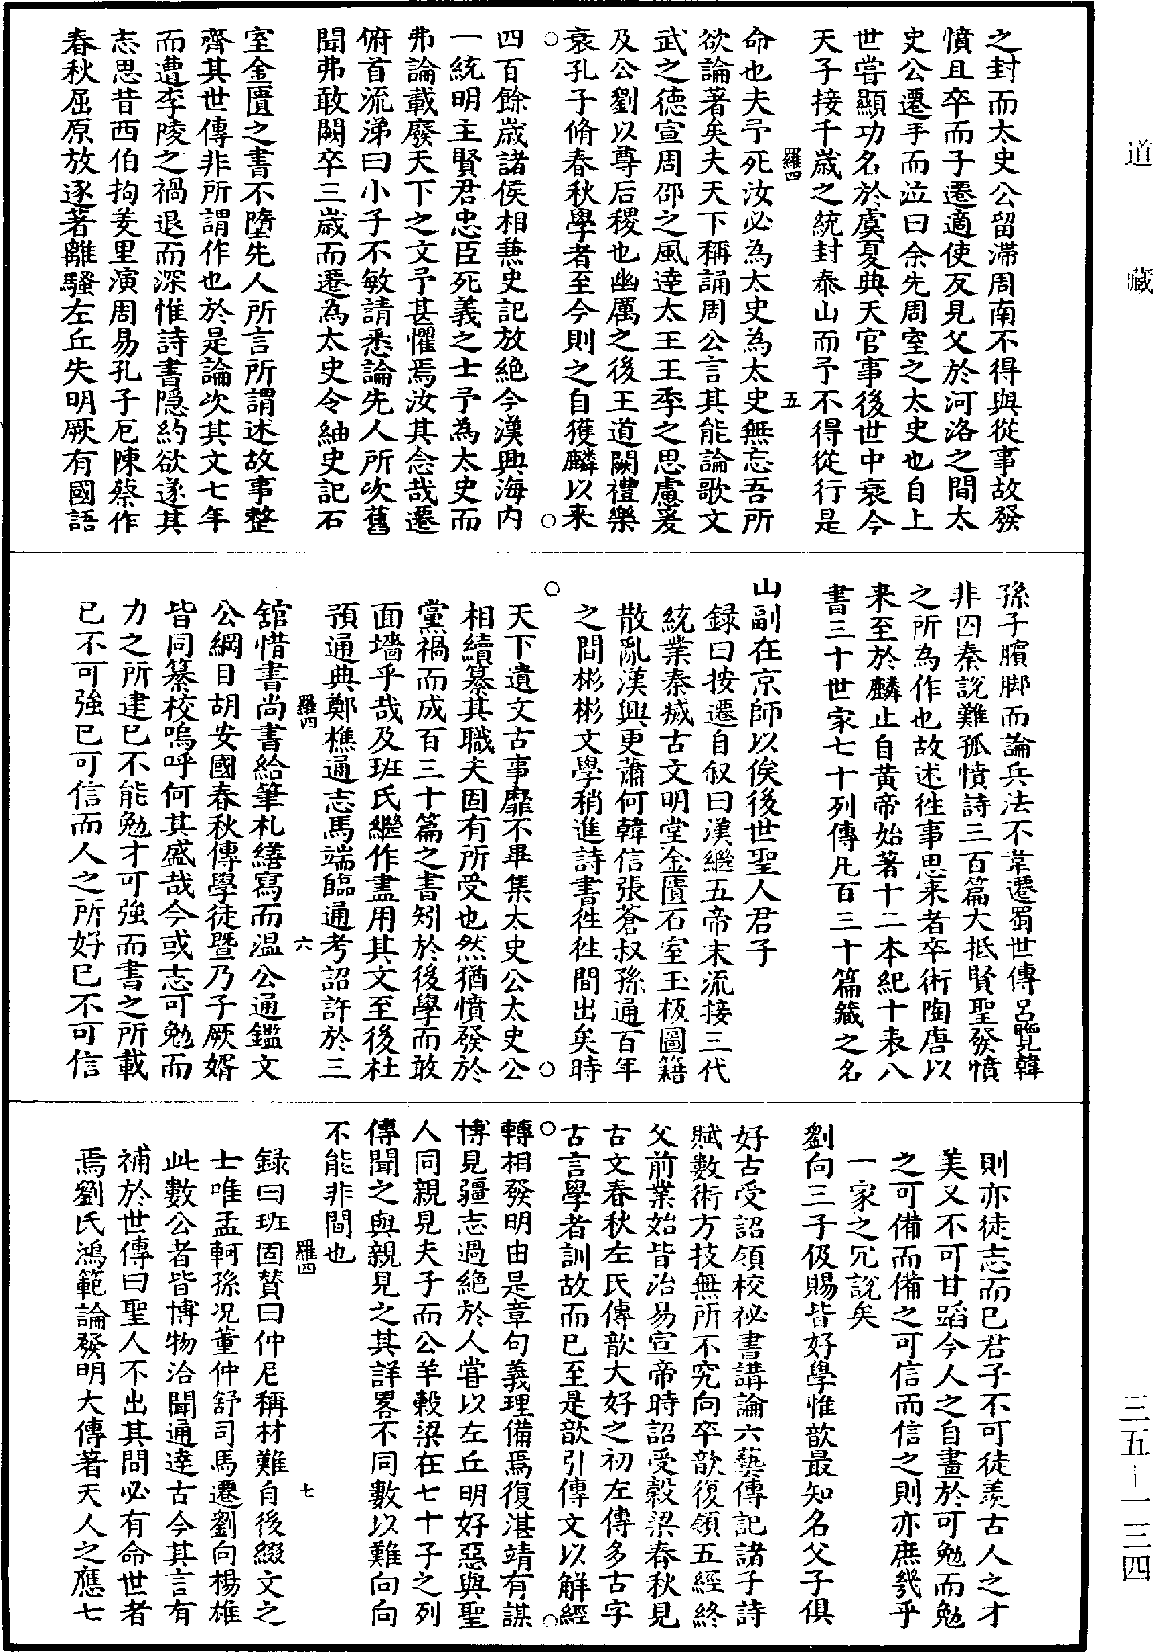 道藏
之封而太史公留滯周南不得與從事故發
憤且卒而子遷適使反見父於河洛之間太
史公遷手而泣曰余先周室之太史也自上
世嘗顯功名於虞夏典天官事後世中衰今
天子接千歲之統封泰山而予不得從行是
羅四 五
命也夫予死汝必為太史為太史無忘吾所
欲論著矣夫天下稱誦周公言其能論歌文
武之德宣周邵之風達太王王季之思慮爰
及公劉以尊后稷也幽厲之後王道闕禮樂
衰孔子脩春秋學者至今則之自獲麟以來
四百餘歲諸侯相兼史記放絕今漢興海內
一統明主賢君忠臣死義之士予為太史而
弗論載廢天下之文予甚懼焉汝其念哉遷
俯首流涕曰小子不敏請悉論先人所次舊
聞弗敢闕卒三歲而遷為太史令紬史記石
室金匱之書不墮先人所言所謂述故事整
齊其世傳非所謂作也於是論次其文七年
而遭李陵之禍退而深惟詩書隱約欲遂其
志思昔西伯拘羑里演周易孔子厄陳蔡作
春秋屈原放逐著離騷左丘失明厥有國語
孫子臏脚而論兵法不韋遷蜀世傳呂覽韓
非囚秦說難孤憤詩三百篇大抵賢聖發憤
之所為作也故述徃事思来者卒術陶唐以
来至於麟止自黃帝始著十二本紀十表八
書三十世家七十列傳凡百三十篇藏之名
山副在京師以俟後世聖人君子
録曰按遷自叙曰漢繼五帝末流接三代
統業秦烕古文明堂金匱石室玉板圖籍
散亂漢興更蕭何韓信張蒼叔孫通百年
之間彬彬文學稍進詩書徃徃間出矣時
天下遺文古事靡不畢集太史公太史公
相續纂其職夫固有所受也然猶憤發於
黨禍而成百三十篇之書矧於後學而敢
面墻乎哉及班氏繼作盡用其文至後杜
預通典鄭樵通志馬端臨通考詔許於三
羅四 六
舘惜書尚書給筆札繕寫而温公通鑑文
公綱目胡安國春秋傳學徒暨乃子厥婿
皆同纂校嗚呼何其盛哉今或志可勉而
力之所建已不能勉才可強而書之所載
已不可強已可信而人之所好已不可信
則亦徒志而已君子不可徒羡古人之才
美又不可甘蹈今人之自畫於可勉而勉
之可備而備之可信而信之則亦庶幾乎
一家之冗說矣
劉向三子伋賜皆好學惟歆最知名父子俱
好古受詔領校祕書講論六藝傳記諸子詩
賦數術方技無所不究向卒歆復領五經終
父前業始皆治易宣帝時詔受穀梁春秋見
古文春秋左氏傳歆大好之初左傳多古字
古言學者訓故而已至是歆引傳文以解經
轉相發明由是章句義理備焉復湛靖有謀
博見疆志過絕於人甞以左丘明好惡與聖
人同親見夫子而公羊穀梁在七十子之列
傳聞之與親見之其詳畧不同數以難向向
不能非間也
羅四 七
録曰班固賛曰仲尼稱材難自後綴文之
士唯孟軻孫况董仲舒司馬遷劉向楊雄
此數公者皆博物洽聞通達古今其言有
補於世傳曰聖人不出其間必有命世者
焉劉氏鴻範論發明大傳著天人之應七
三五—一三四